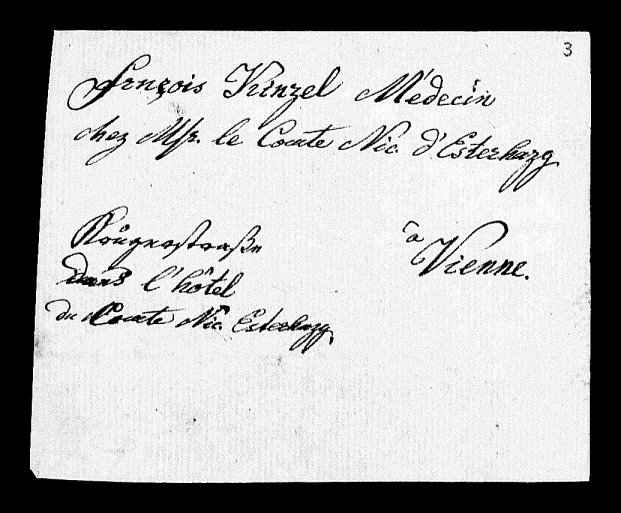 3
François Kinzel Médecin
chez Msr. le Comte Nic. d'Esterhazy
Krügerstraße
à Vienne.
dans l'hôtel
du Comte Nic. Esterhazy